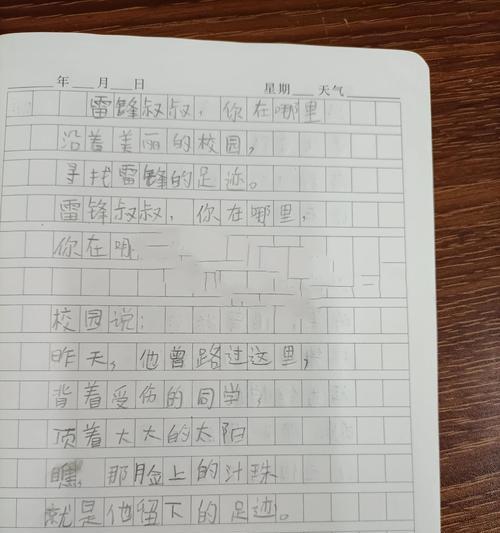 年 月 日 星期 天气
雷锋叔叔，你在哪里
沿着美丽的校园，
寻找雷锋的足迹。
雷锋叔叔，你在哪里，
你在
校园说：
昨天，他曾路过这里，
背着受伤的同学，
顶着大大的太阳
瞧，那脸上的汁珠
就是他留下的足迹。